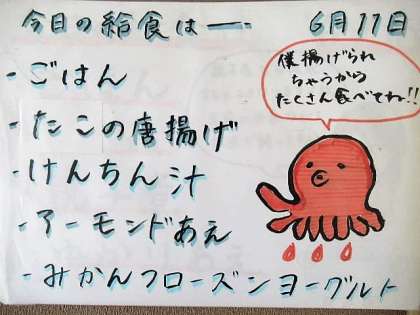 今日の給食は― 6月11日
・ごはん
・たこの唐揚げ
・けんちん汁
・アーモンドあえ
・みかんフローズンヨーグルト
僕揚げられ
ちゃうから
たくさん食べてね!!